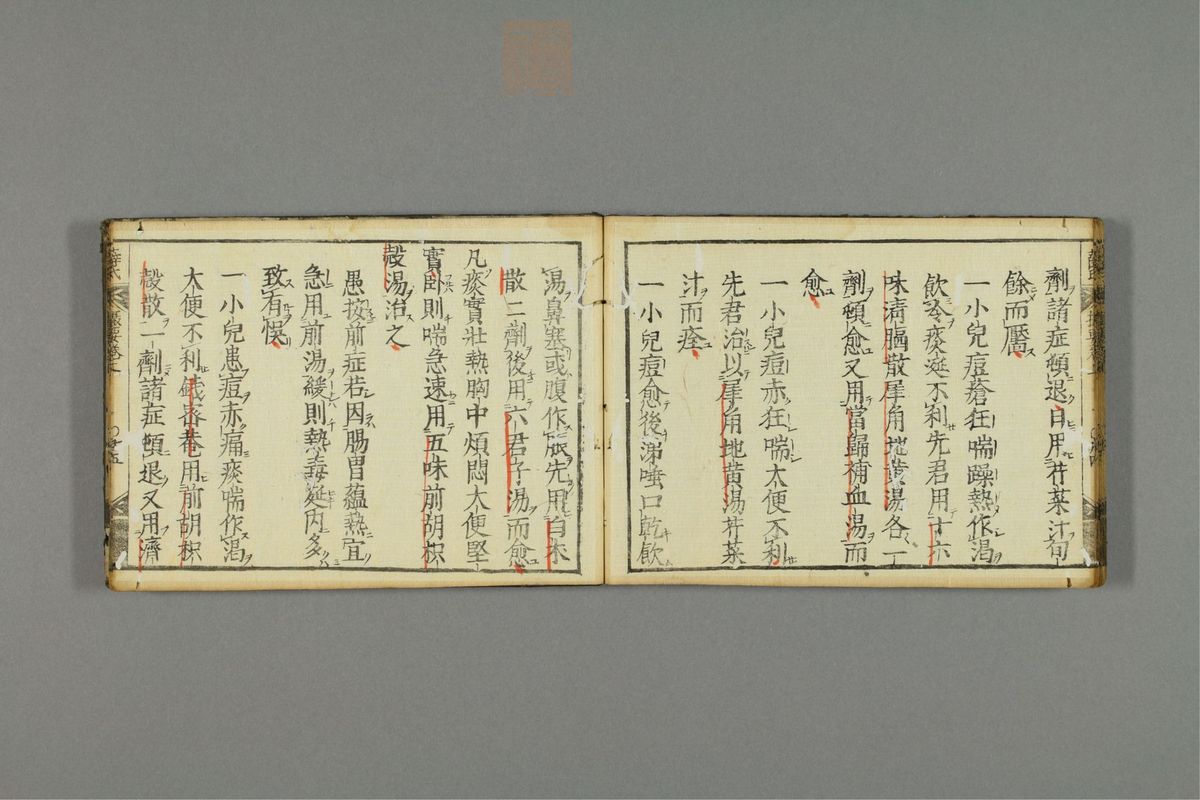 劑諸症頓退日用芹菜汁旬
餘而靨
一小兒痘瘡狂喘躁熱作渴
飲冷痰涎不利先君用十六
味淸膈散犀角地黃湯各一
劑頓愈又用當歸補血湯而
愈
一小兒痘赤狂喘大便不利
先君治以犀角地黃湯芹菜
汁而痊
一小兒痘愈後涕唾口乾飮
湯鼻塞或腹作脹先用白朮
散二劑後用六君子湯而愈
凡痰實壯熱胸中煩悶大便堅
實臥則喘急速用五味前胡枳
殼湯治之
愚按前症若因腸胃蘊熱宜
急用前湯緩則熱毒延内多
致有悞
一小兒患痘赤痛痰喘作渴
大便不利錢密菴用前胡枳
殼散一劑諸症頓退又用濟